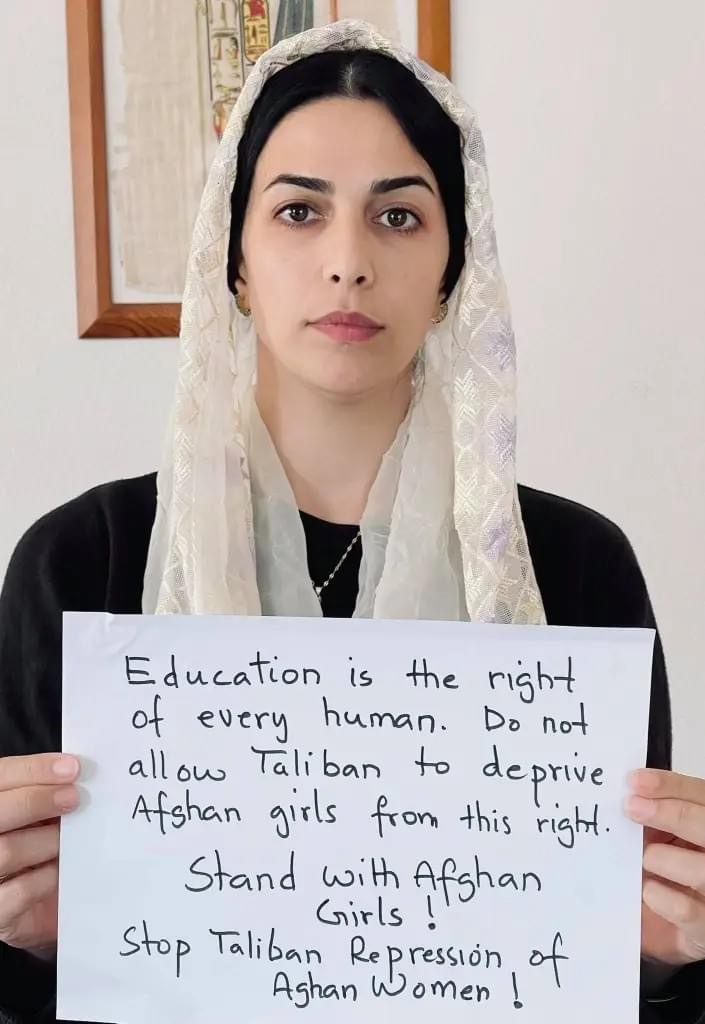 Education is the right
of every human. Do not
allow Taliban to deprive
Afghan girls from this right.
Stand with Afghan
Girls !
Stop Taliban Repression of
Aghan Women !